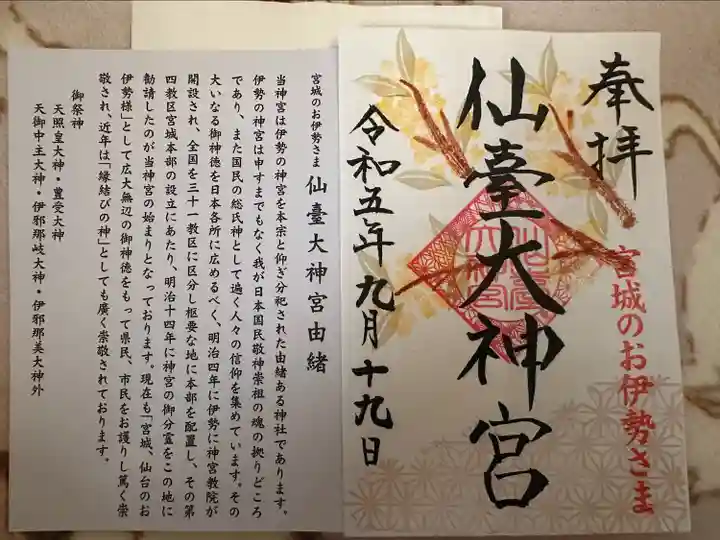 奉拝
宮城のお伊勢さま
仙臺大神宮
令和五年九月十九日
宮城のお伊勢さま 仙臺大神宮由緒
当神宮は伊勢の神宮を本宗と仰ぎ分祀された由緒ある神社であります。
伊勢の神宮は申すまでもなく我が日本国民敬神崇祖の魂の拠りどころ
であり、また国民の総氏神として遍く人々の信仰を集めています。その
大いなる御神徳を日本各所に広めるべく、明治四年に伊勢に神宮教院が
開設され、全国を三十一教区に区分し枢要な地に本部を配置し、その第
四教区宮城本部の設立にあたり、明治十四年に神宮の御分霊をこの地に
勧請したのが当神宮の始まりとなっております。現在も「宮城、仙台のお
伊勢様」として広大無辺の御神徳をもって県民、市民をお護りし篤く崇
敬され、近年は「縁結びの神」としても廣く崇敬されております。
御祭神
天照皇大神・豊受大神
天御中主大神・伊邪那岐大神・伊邪那美大神外